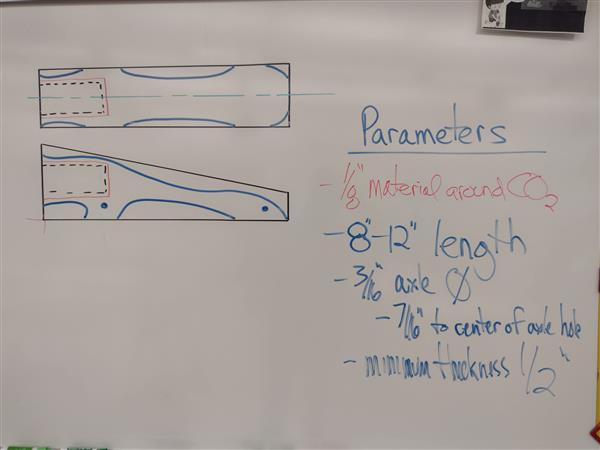 Parameters
- 1/8" material around CO2
- 8"-12" length
- 3/16" axle Ø
- 7/16" to center of axle hole
- minimum thickness 1/2"